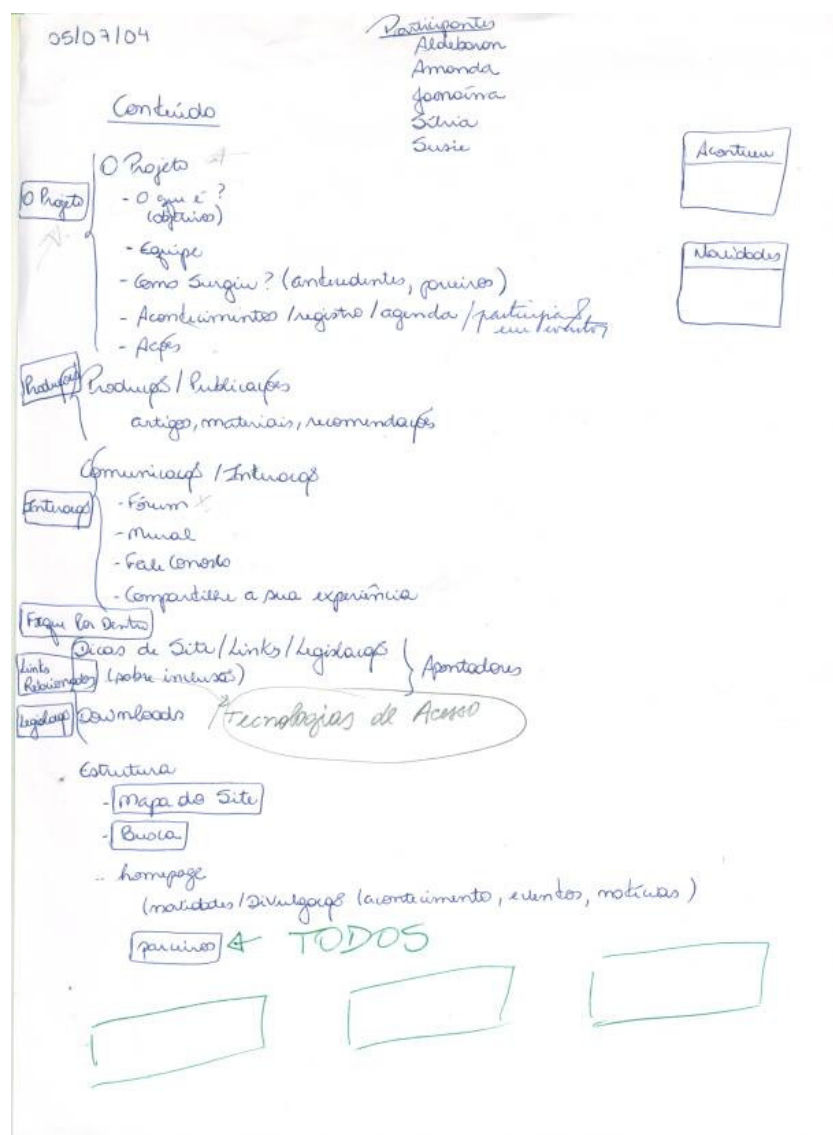 05/07/04
Participantes
Aldebaran
Amanda
Janaína
Sílvia
Susie
Conteúdo
Aconteceu
Novidades
O Projeto
O Projeto
- O que é?
(objetivos)
- Equipe
- Como Surgiu? (antecedentes, parceiros)
- Acontecimentos / registro / agenda / participação
em eventos
- Ações
Produção
Produção / Publicações
artigos, materiais, recomendações
Comunicação / Interação
Interação
- Fórum
- Mural
- Fale Conosco
- Compartilhe a sua experiência
Fique Por Dentro
Dicas de Site / Links / Legislação
Apontadores
Links
Relacionados
(sobre inclusão)
Legislação
Downloads / Tecnologias de Acesso
Estrutura
- Mapa do Site
- Busca
- homepage
(novidades / Divulgação (acontecimento, eventos, notícias)
parceiros
TODOS